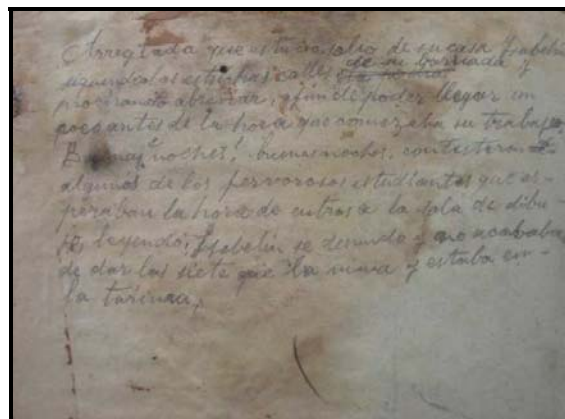 Arreglada que estuvo salio de su casa Isabelin
siguiendo las estrechas calles de su barriada y
procurando abreviar, a fin de poder llegar un
poco antes de la hora que comenzaba su trabajo.
Buenas noches! buenas noches, contestaron
algunos de los fervorosos estudiantes que es-
peraban la hora de entrar a la sala de dibu-
jo leyendo; Isabelin se desnudo y no acababan
de dar las siete que ya estaba en-
la tarima,